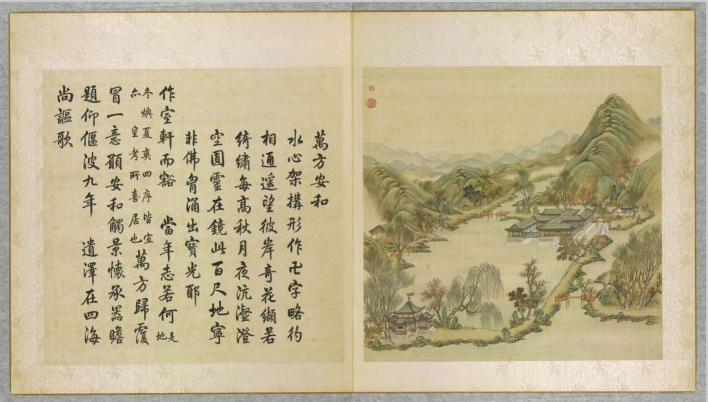 萬方安和
水心架構形作卍字略彴
相通遥望彼岸奇花纈若
綺繡每高秋月夜沆瀣澄
空圓靈在鏡此百尺地寧
非佛胷涌出寶光耶
作室軒而豁 當年志若何 是地
冬燠夏爽四序皆宜亦 皇考所喜居也 萬方歸覆
冒一意願安和觸景懷承器瞻
題仰偃波九年 遺澤在四海
尚謳歌